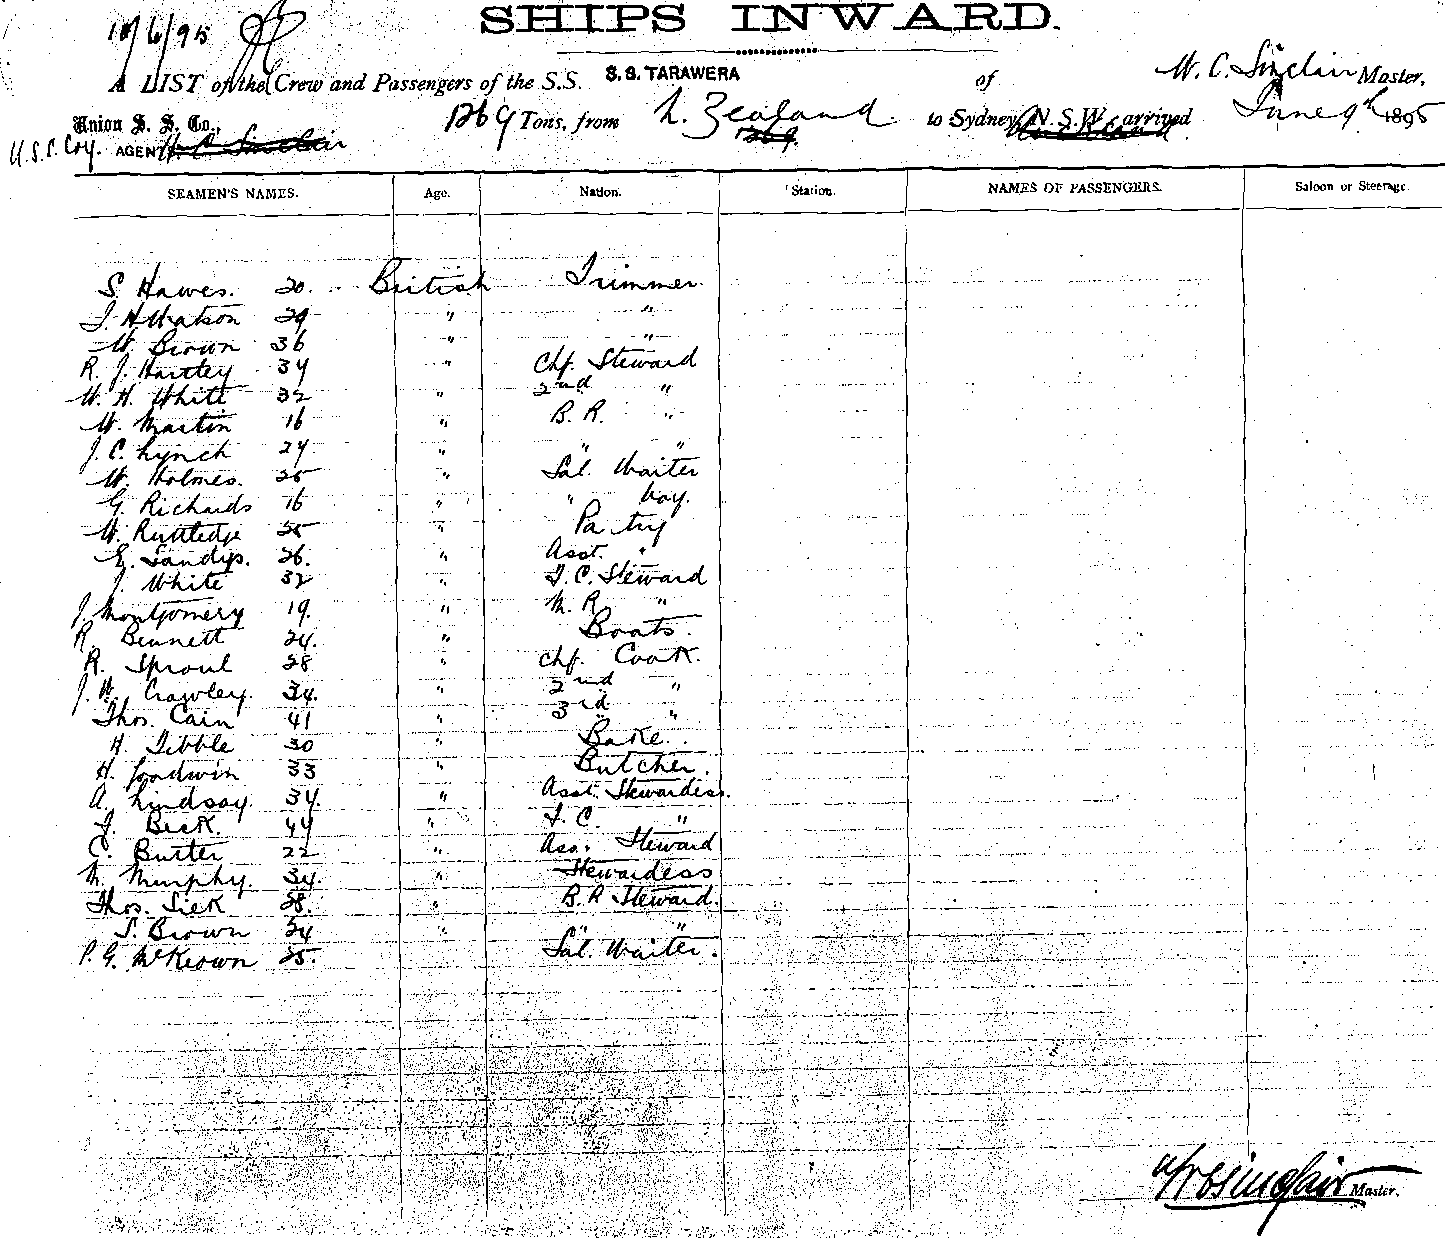 10/6/95
SHIPS INWARD.
A LIST of the Crew and Passengers of the S.S. S. S. TARAWERA of W. C. Sinclair Master,
Union S. S. Co., 1269 Tons, from N. Zealand to Sydney, N.S.W., arrived June 9th 1895
1269
U.S.S. Coy. AGENTS. W C Sinclair
SEAMEN'S NAMES. Age. Nation. Station. NAMES OF PASSENGERS. Saloon or Steerage.
S. Hawes. 20. British Trimmer.
J. H. Watson 29 " "
W. Brown 36 " "
R. J. Hartley 34 " Chf. Steward
W. H. White 32 " 2nd "
W. Martin 16 " B. R. "
J. C. Lynch 24 " " "
W. Holmes. 25 " Sal. Waiter
G. Richards 16 " " boy.
W. Rutledge 25 " Pantry
E. Sandys. 26. " Asst. "
J. White 32 " F. C. Steward
J. Montgomery 19. " M. R. "
R. Bennett 24. " Boats.
R. Sproul 28 " Chf. Cook.
J. W. Crawley. 34. " 2nd "
Thos. Cain 41 " 3rd "
H. Tibble 30 " Bake.
H. Goodwin 33 " Butcher.
A. Lindsay. 34. " Asst. Stewardess.
F. Beck. 44 " F. C. "
C. Butter 22 " Ass. Steward
M. Murphy. 34. " Stewardess
Thos. Sick 28. " B. R Steward.
S. Brown 24 " " "
P. G. McKeown 25. " Sal. Waiter.
W C Sinclair Master.